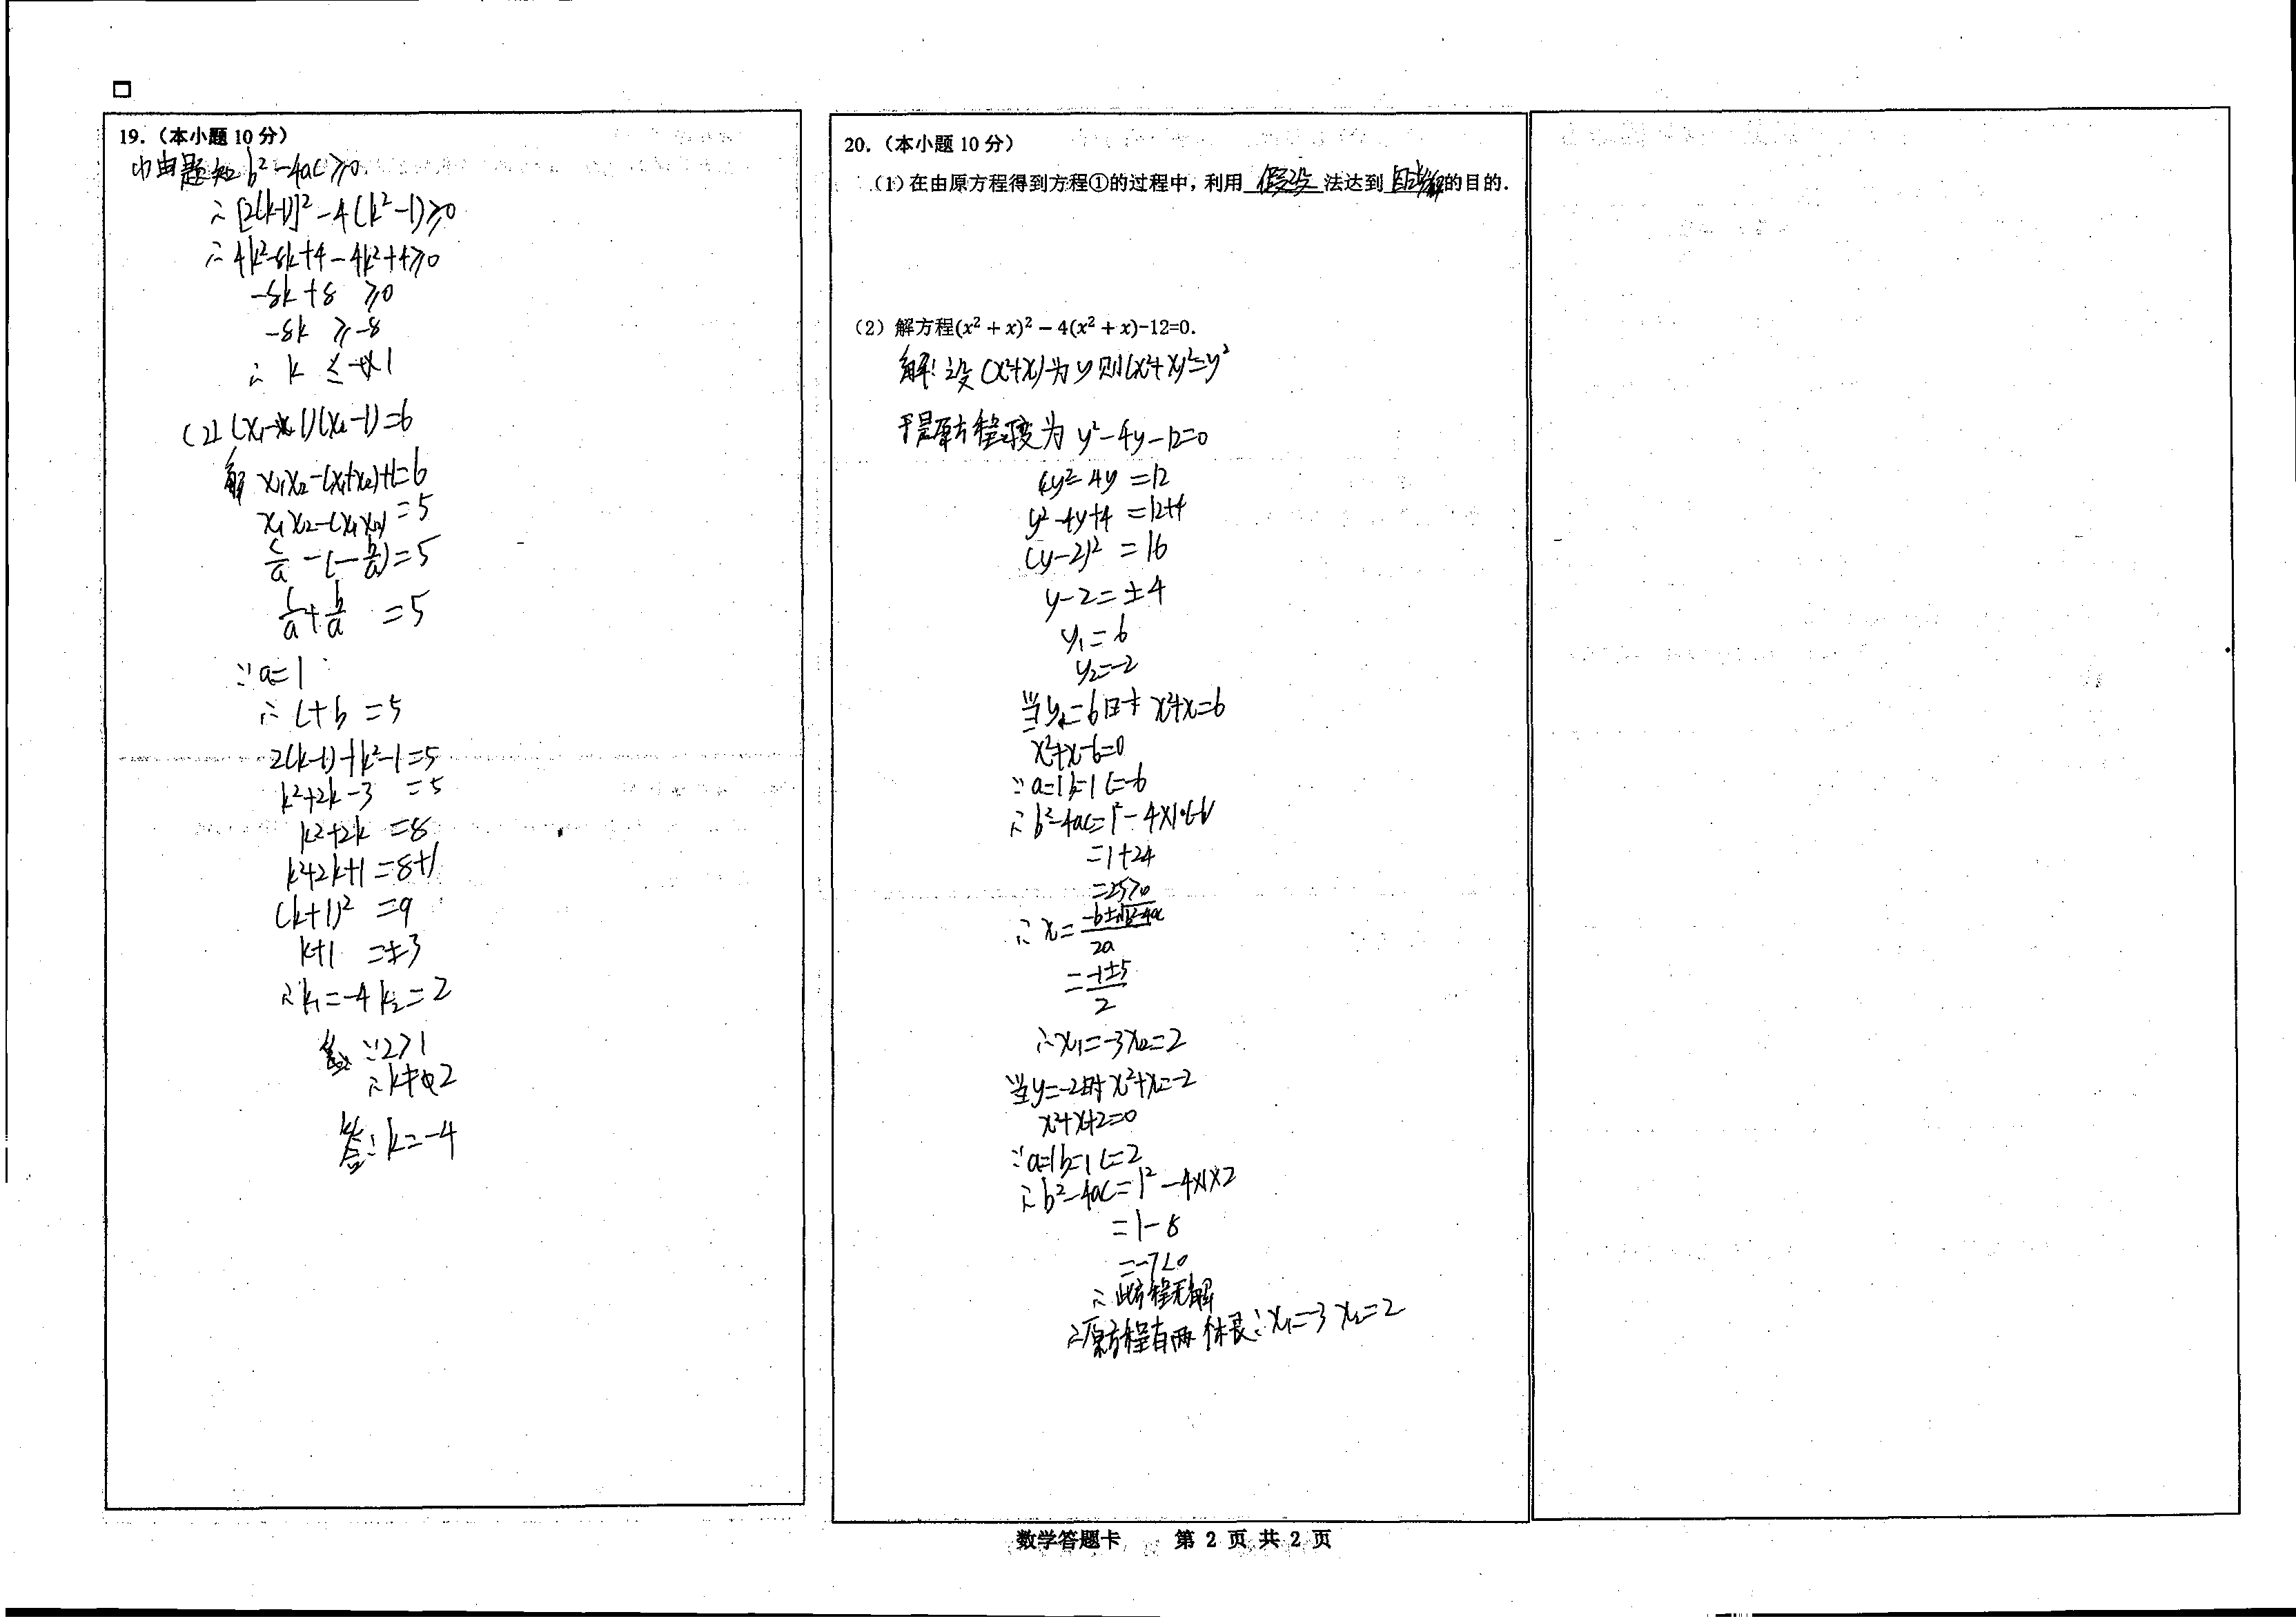 19.（本小题 10 分）
(1)由题知 b²-4ac≥0.
∴[2(k-1)]²-4(k²-1)≥0
∴4k²-8k+4-4k²+4≥0
-8k+8 ≥0
-8k ≥-8
∴ k ≤ 1
(2) (x₁-1)(x₂-1)=6
解 x₁x₂-(x₁+x₂)+1=6
x₁x₂-(x₁x₂)=5
c/a-(-b/a)=5
c/a+b/a =5
∵a=1
∴ c+b =5
2(k-1)+k²-1=5
k²+2k-3 =5
k²+2k =8
k²+2k+1=8+1
(k+1)² =9
k+1 =±3
∴k₁=-4 k₂=2
∵2>1
∴k≠2
答:k=-4
20.（本小题 10 分）
（1）在由原方程得到方程①的过程中，利用 假设 法达到 的目的.
（2）解方程(x² + x)² − 4(x² + x)-12=0.
解:设(x²+x)为y则(x²+x)²=y²
于是原方程变为 y²-4y-12=0
y²-4y =12
y²-4y+4 =12+4
(y-2)² =16
y-2=±4
y₁=6
y₂=-2
当y=6时 x²+x=6
x²+x-6=0
∵a=1 b=1 c=-6
∴b²-4ac=1²-4×1·(-6)
=1+24
=25>0
∴x=(-b±√b²-4ac)/2a
=(-1±5)/2
∴x₁=-3 x₂=2
当y=-2时 x²+x=-2
x²+x+2=0
∵a=1 b=1 c=2
∴b²-4ac=1²-4×1×2
=1-8
=-7<0
∴此方程无解
∴原方程有两个根:x₁=-3 x₂=2
数学答题卡 第 2 页 共 2 页